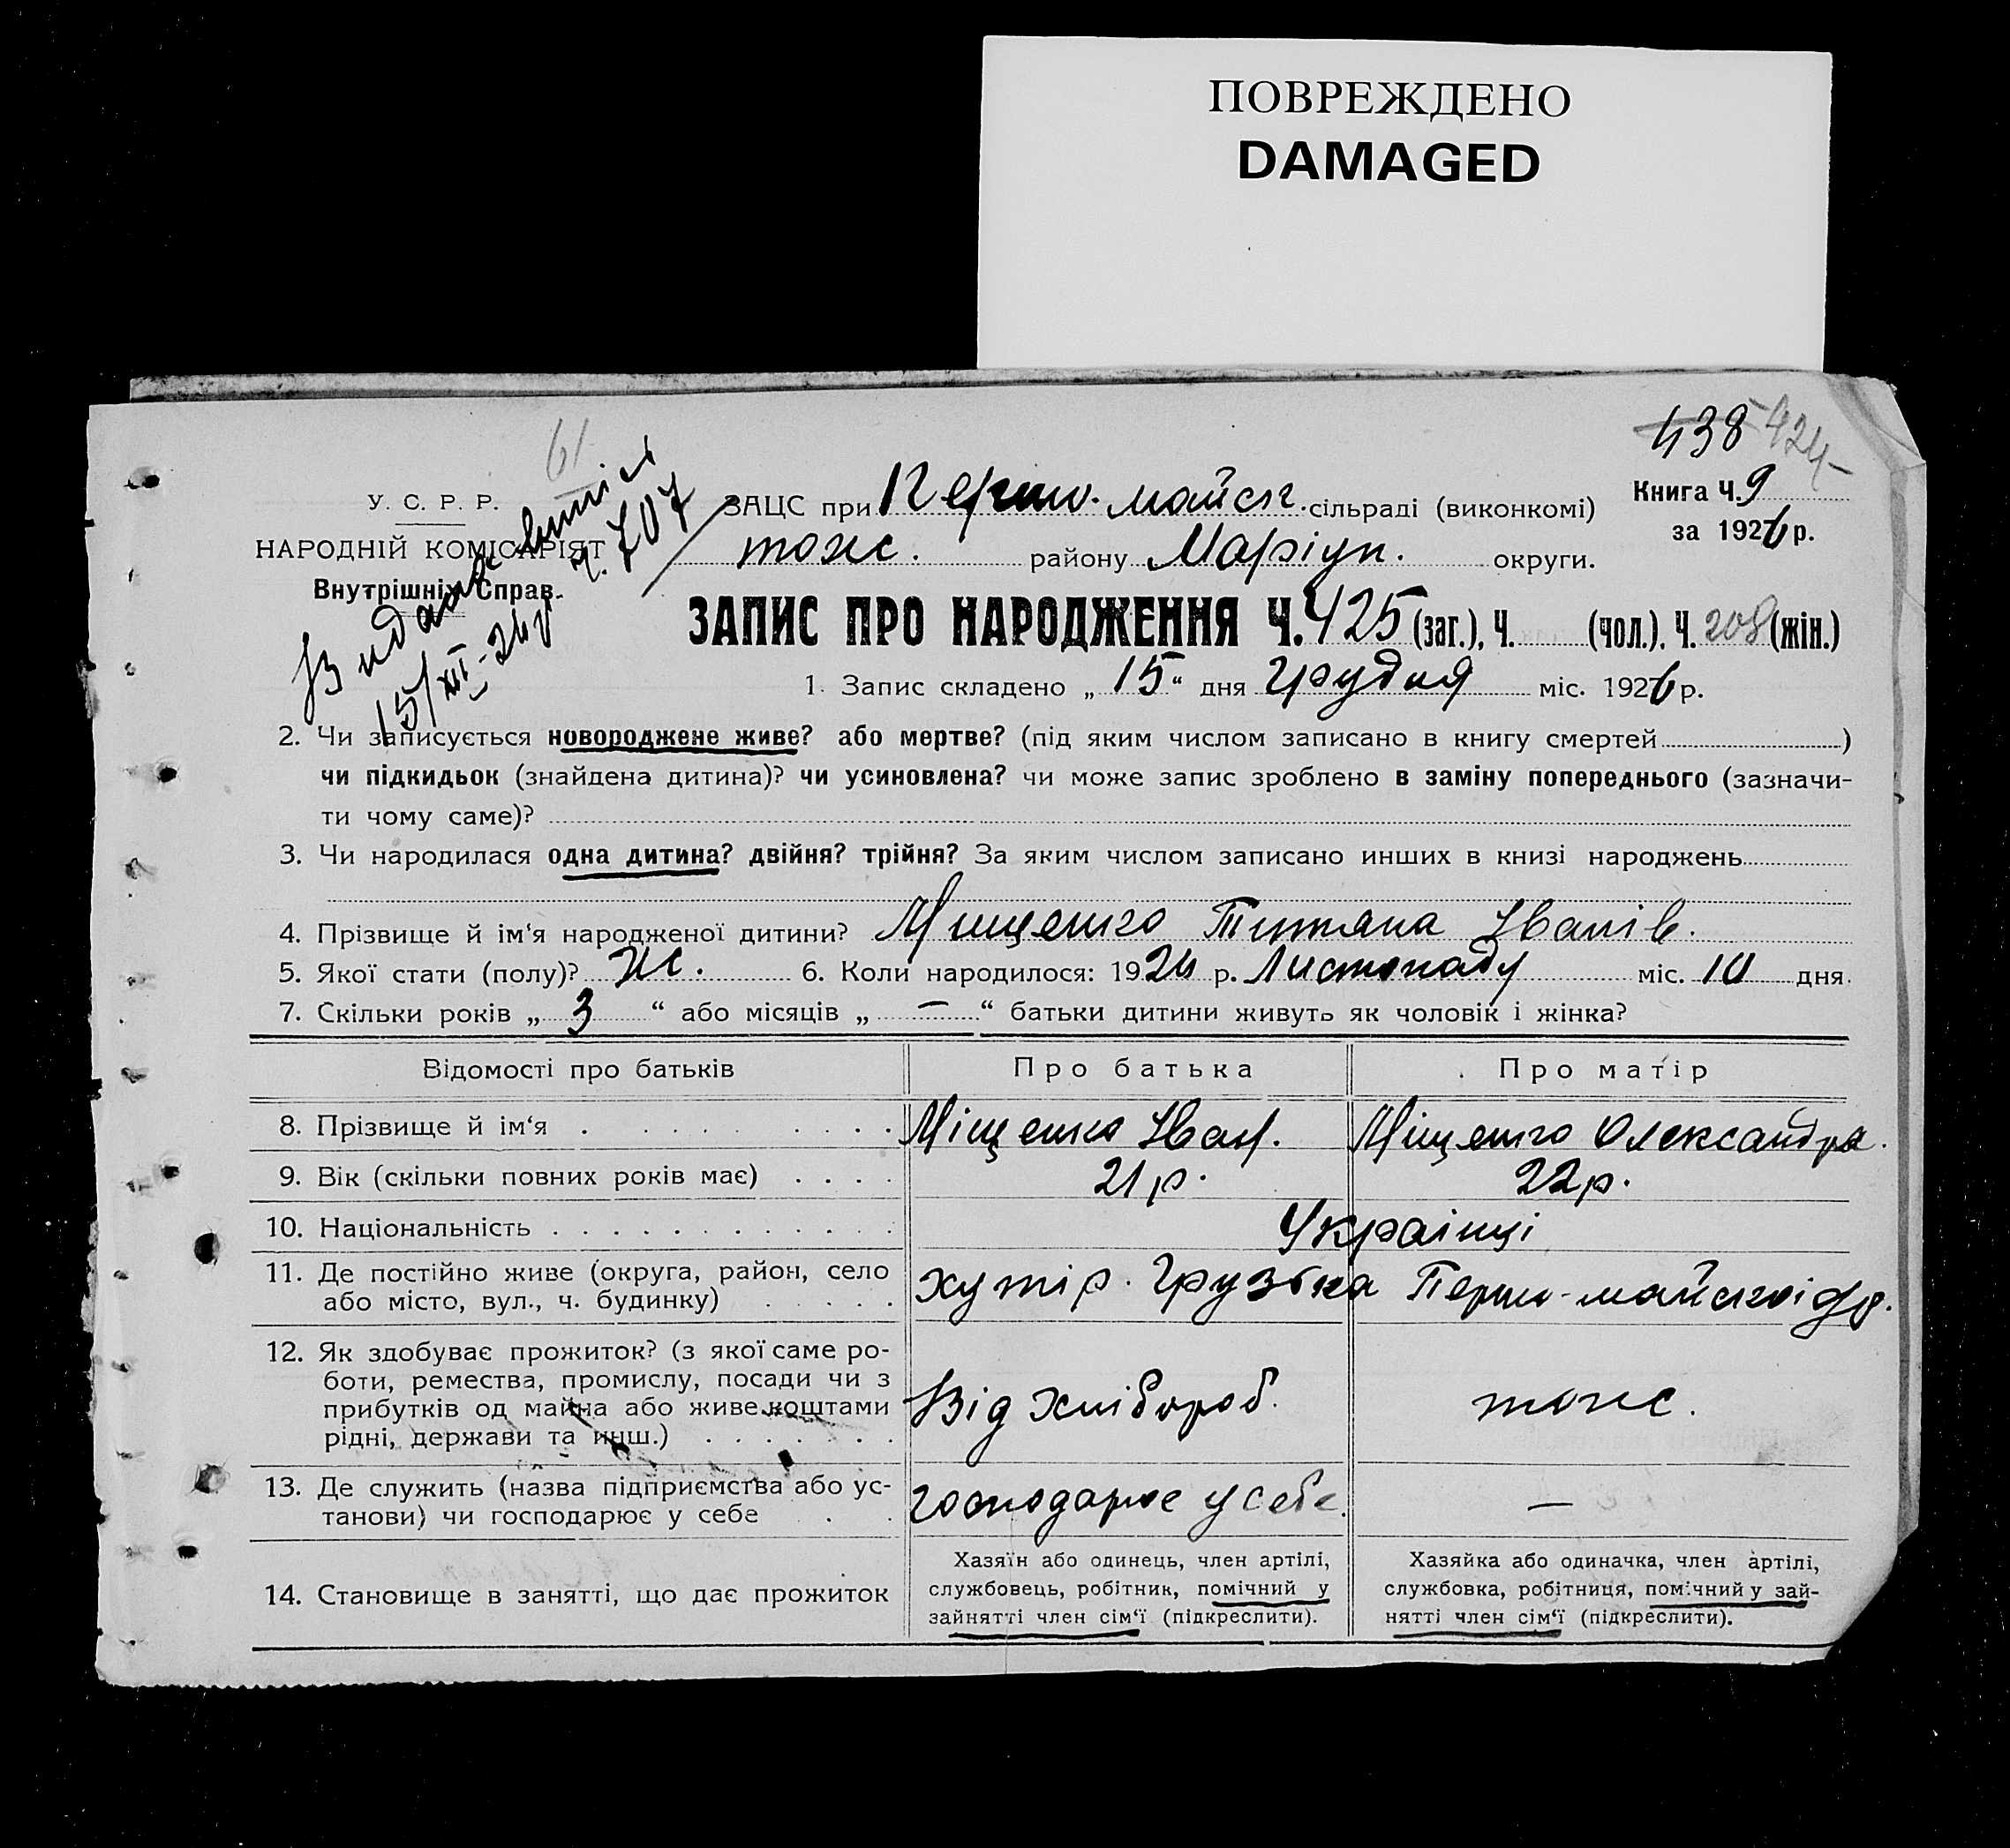 ПОВРЕЖДЕНО
DAMAGED
438 424
61
У. С. Р. Р.
НАРОДНІЙ КОМІСАРІЯТ
Внутрішніх Справ.
Видано витяг
ч. 707
15/XII-26р
ЗАЦС при Першо-майськ. сільраді (виконкомі)
Книга Ч. 9
за 1926 р.
тож. району Маріуп. округи.
ЗАПИС ПРО НАРОДЖЕННЯ Ч. 425 (заг.), Ч. (чол.), Ч. 208 (жін.)
1. Запис складено „ 15 “ дня Грудня міс. 1926 р.
2. Чи записується новороджене живе? або мертве? (під яким числом записано в книгу смертей )
чи підкидьок (знайдена дитина)? чи усиновлена? чи може запис зроблено в заміну попереднього (зазначи-
ти чому саме)?
3. Чи народилася одна дитина? двійня? трійня? За яким числом записано инших в книзі народжень
4. Прізвище й ім‘я народженої дитини? Міщенко Титяна Іванів.
5. Якої стати (полу)? Ж. 6. Коли народилося: 1926 р. Листопаду міс. 10 дня.
7. Скільки років „ 3 “ або місяців „ — “ батьки дитини живуть як чоловік і жінка?
Відомості про батьків Про батька Про матір
8. Прізвище й ім‘я Міщенко Іван. Міщенко Олександра.
9. Вік (скільки повних років має) 21 р. 22 р.
10. Національність Українці
11. Де постійно живе (округа, район, село
або місто, вул., ч. будинку)
хутір. Грузька Першо-майської с/р.
12. Як здобуває прожиток? (з якої саме ро-
боти, ремества, промислу, посади чи з
прибутків од майна або живе коштами
рідні, держави та инш.)
Від хлібороб. тож.
13. Де служить (назва підприємства або ус-
танови) чи господарює у себе
господарює у себе. —
14. Становище в занятті, що дає прожиток
Хазяїн або одинець, член артілі,
службовець, робітник, помічний у
зайнятті член сім‘ї (підкреслити).
Хазяйка або одиначка, член артілі,
службовка, робітниця, помічний у зай-
нятті член сім‘ї (підкреслити).